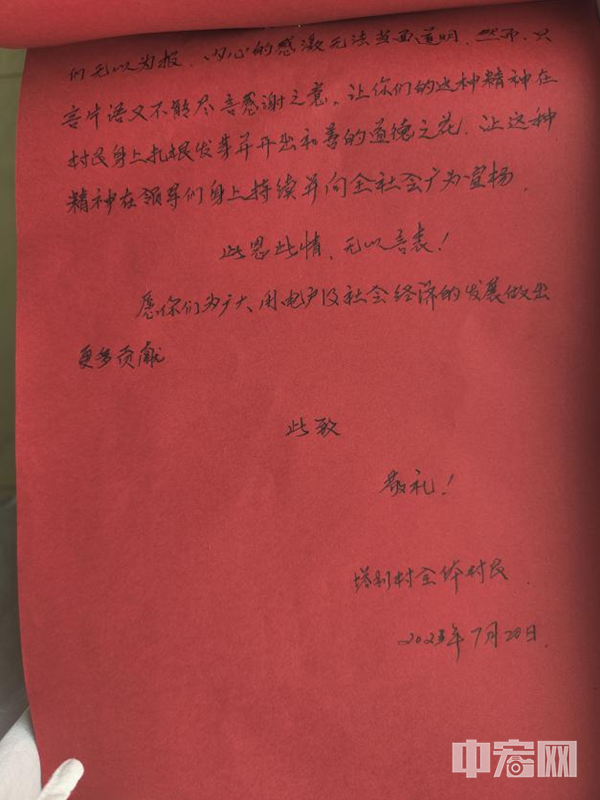 们无以为报，内心的感激无法当面道明，然而，只
言片语又不能尽言感谢之意，让你们的这种精神在
村民身上扎根发芽并开出和善的道德之花，让这种
精神在领导们身上持续并向全社会广为宣扬，
此恩此情，无以言表！
愿你们为广大用电户及社会经济的发展做出
更多贡献
此致
敬礼！
塔利村全体村民
2023年7月20日.
中宏网